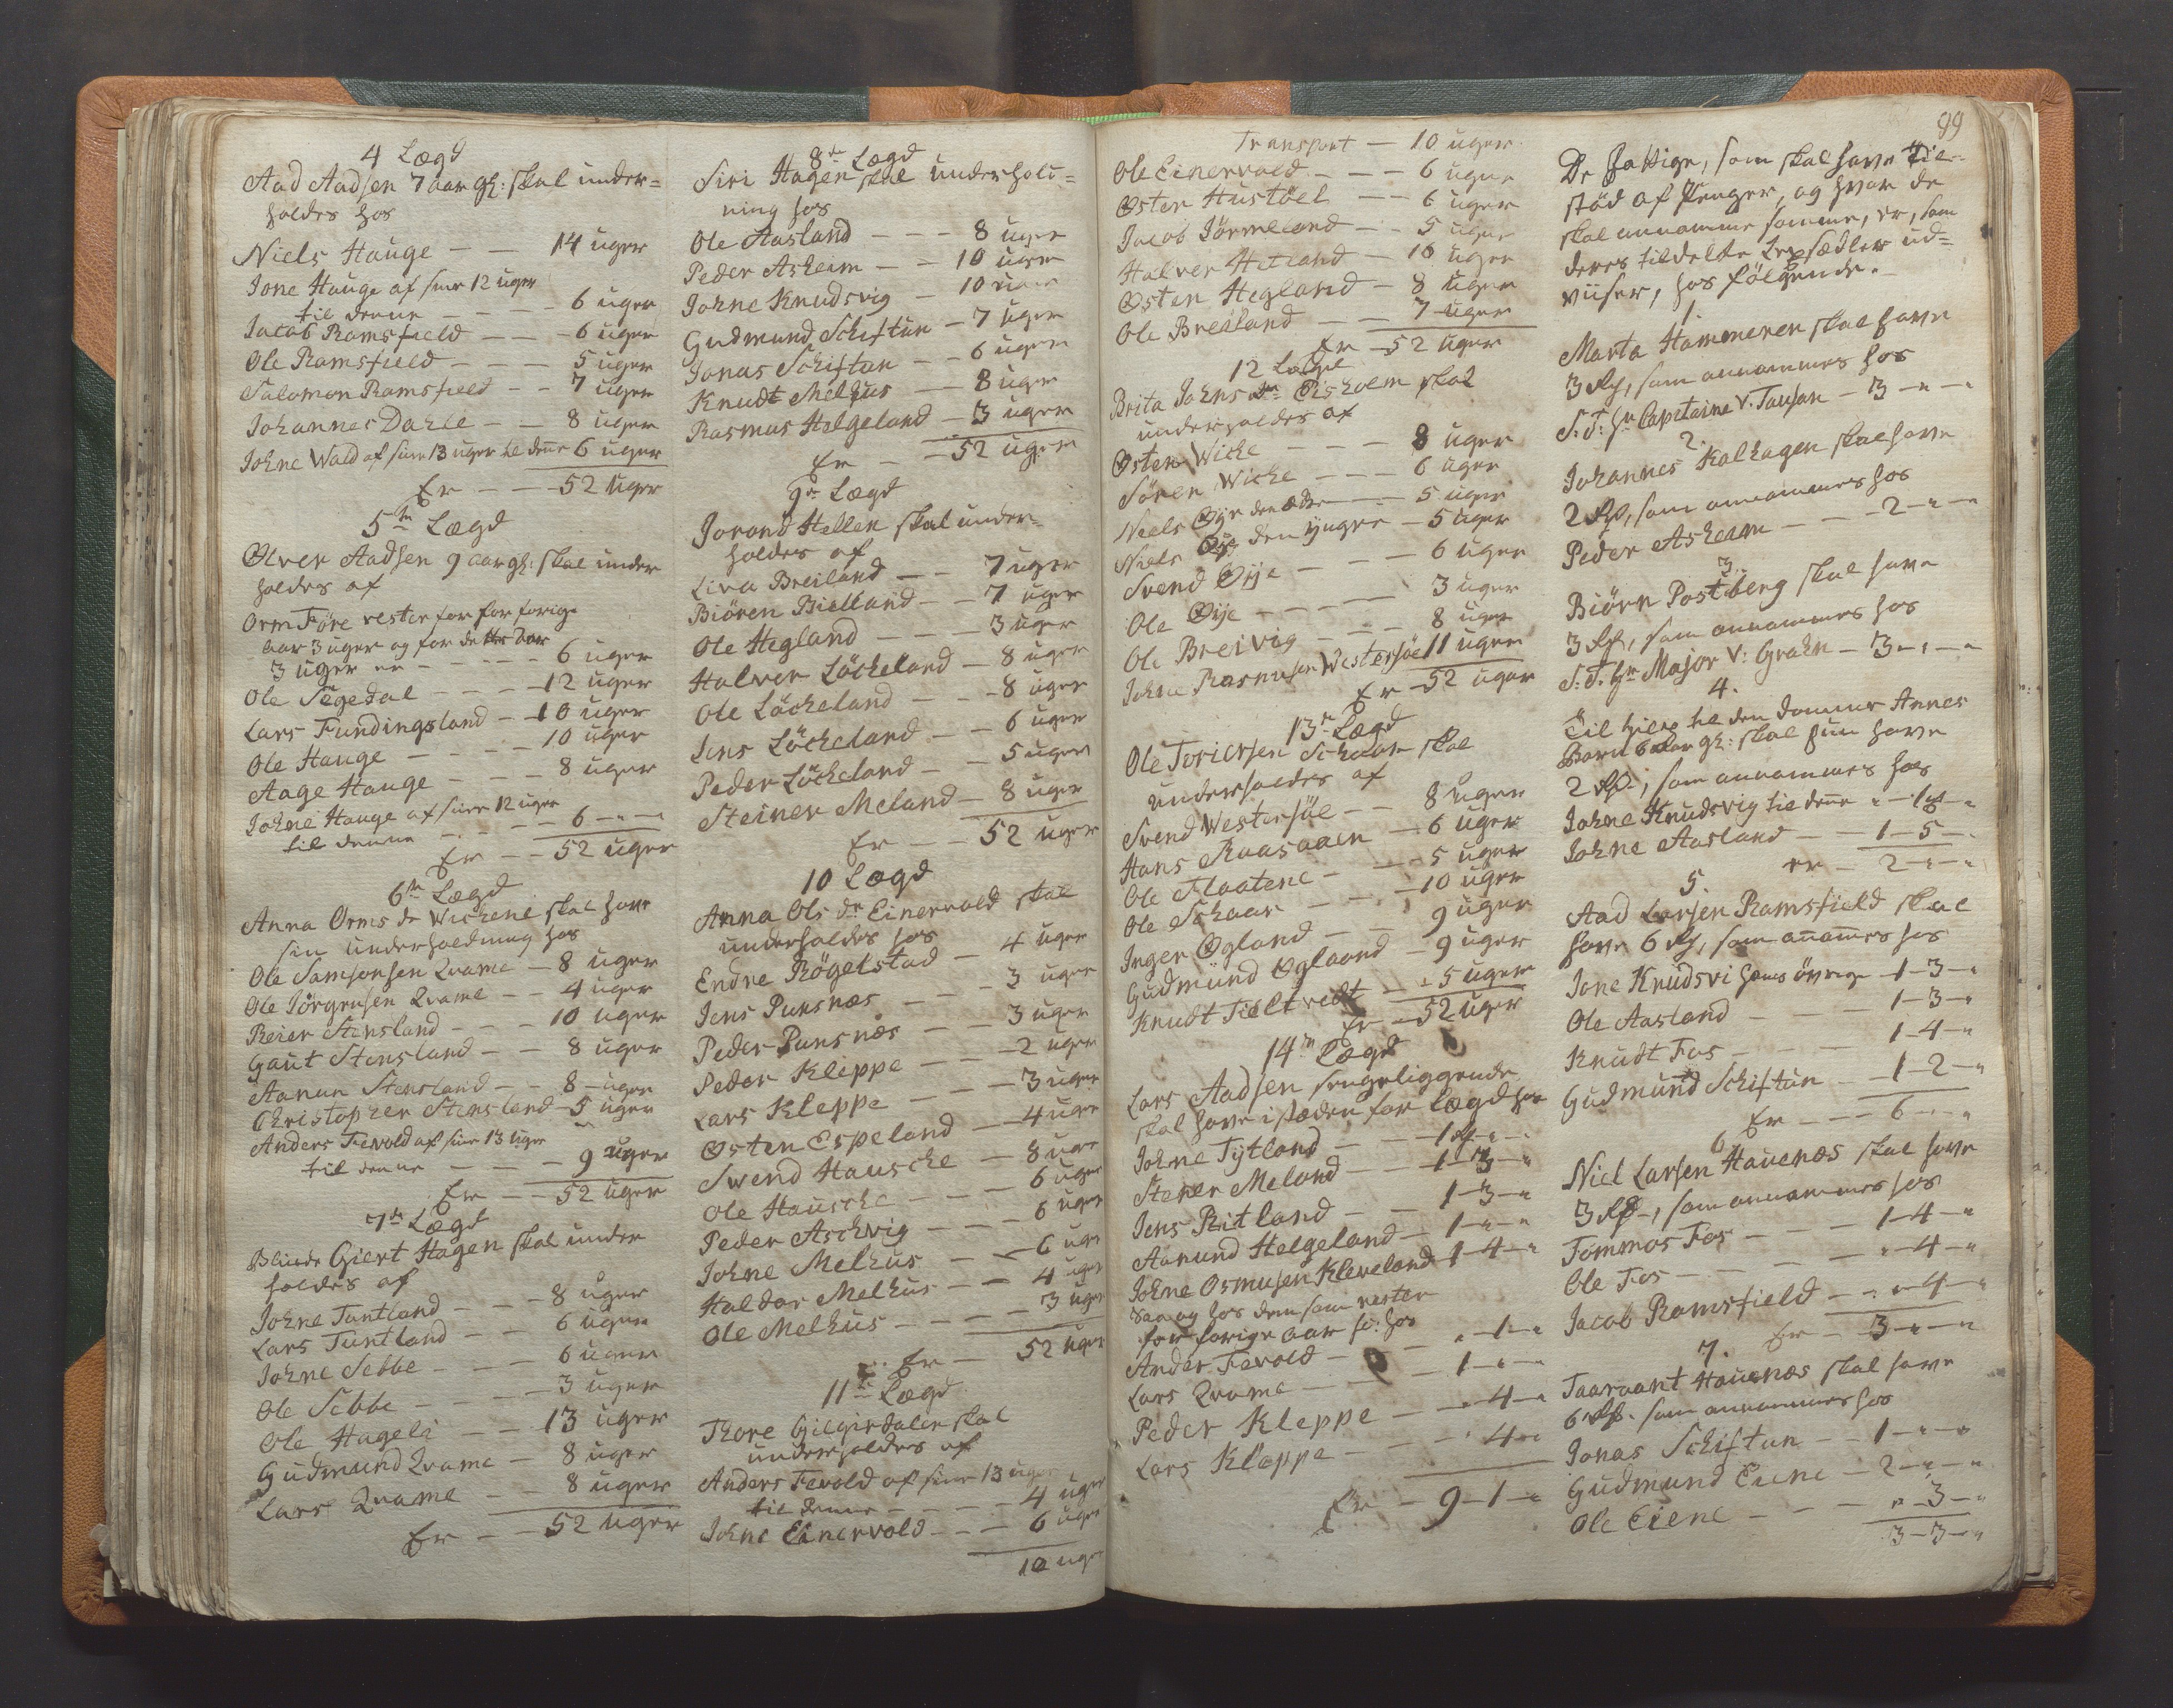 4 Lægd
Aad Aadsen 7 aar gl: skal under=
holdes hos
Niels Hauge — — 14 uger
Jone Hauge af sine 12 uger
til denne — — — 6 uger
Jacob Ramsfield — — 6 uger
Ole Ramsfield — — — 5 uger
Salomon Ramsfield — — 7 uger
Johannes Dahle — — 8 uger
Johne Wald af sine 13 uger til denne 6 uger
Er — — 52 uger
5te Lægd
Olver Aadsen 9 aar gl: skal under
holdes af
Orm Føre rester for for forige
aar 3 uger og for dette Aar
3 uger er — — — — 6 uger
Ole Segedal — — — 12 uger
Lars Fundingsland — 10 uger
Ole Hauge — — — — 10 uger
Aage Hauge — — — 8 uger
Johne Hauge af sine 12 uger
til denne — — — 6 — „ —
Er — — 52 uger
6te Lægd
Anna Orms dr Wickene skal have
sin underholdning hos
Ole Samsonsen Qvame — 8 uger
Ole Jørgensen Qvame — — 4 uger
Reier Stensland — — — 10 uger
Gaut Stensland — — 8 uger
Aanun Stensland — — 8 — uger
Christopher Stensland — 5 uger
Anders Fevold af sine 13 uger
til denne — — — 9 uger
Er — — 52 uger
7de Lægd
Blinde Giert Hagen skal under
holdes af
Johne Tuntland — — — 8 uger
Lars Tuntland — — 6 uger
Johne Sebbe — — — 6 uger
Ole Sebbe — — — 3 uger
Ole Hageli — — 13 uger
Gudmund Qvame — 8 uger
Lars Qvame — — 8 uger
Er — — 52 uger
8de Lægd
Siri Hagen skal underhold=
ning hos
Ole Aasland — — — 8 uger
Peder Asheim — — 10 uger
Johne Knudsvig — 10 uger
Gudmund Schiftun — 7 uger
Jonas Schiftun — — 6 uger
Knudt Melhus — — 8 uger
Rasmus Helgeland — 3 uger
Er — — 52 uger
9de Lægd
Jorand Hellen skal under=
holdes af
Liva Breiland — — 7 uger
Biøren Bielland — — 7 uger
Ole Hegland — — — 3 uger
Halver Løckeland — 8 uger
Ole Løckeland — — 8 uger
Jens Løckeland — — 6 uger
Peder Løckeland — — 5 uger
Steiner Meland — 8 uger
Er — — 52 uger
10 Lægd
Anna Ols dr Einervold skal
underholdes hos
Endre Røgelstad — 4 uger
Jens Punsnæs — — — 3 uger
Peder Punsnæs — — 3 uger
Peder Kleppe — — — 2 uger
Lars Kleppe — — — 3 uger
Østen Espeland — — 4 uger
Swend Hauscke — 8 uger
Ole Hauscke — — — 6 uger
Peder Aschvig — — — 6 uger
Johne Melhus — — 6 uger
Haldor Melhus — — 4 uger
Ole Melhus — — — — 3 uger
Er — 52 uger
11te Lægd
Thore Gilgiedalen skal
underholdes af
Anders Fevold af sine 13 uger
til denne — — — — 4 uger
Johne Einervold — — — 6 uger
10 uger
Transport — 10 uger
Ole Einervold — — — 6 uger
Østen Hustøel — — 6 uger
Jacob Jørmeland — — 5 uger
Halver Hetland — 10 uger
Østen Hegland — 8 uger
Ole Breiland — — 7 uger
Er — 52 uger
12 Lægd
Brita Johns dr Eisholm skal
underholdes af
Østen Wicke — — — 8 uger
Søren Wicke — — — 6 uger
Niels Øye den ældre — — 5 uger
Niels Øye den yngre — 5 uger
Svend Øije — — — — 6 uger
Ole Øije — — — — — 3 uger
Ole Breivig — — — — 8 uger
Johne Rasmusen Westersøe 11 uger
Er — 52 uger
13de Lægd
Ole Toriersen Schaar skal
underholdes af
Svend Westersøe — — 8 uger
Hans Raasaaen — 6 uger
Ole Flaatene — — — 5 uger
Ole Schaar — — — 10 uger
Inger Øgland — — 9 uger
Gudmund Øglaand — 9 uger
Knudt Tieltvedt — — 5 uger
Er — 52 uger
14de Lægd
Lars Aadsen sengeliggende
skal have i stæden for Lægd hos
Johne Tytland — — 1 — „ —
Stener Meland — — 1 — 3 — „
Jens Ritland — — 1 — 3 — „
Aanund Helgeland — 1 — „ — „
Johne Osmusen Kleveland 1 — 4 — „
Saa og hos dem som rester
for forige aar sc: hos
Anders Fevold — — „ — 1 — „
Lars Qvame — — — 1 — „ — „
Peder Kleppe — — „ 4 — „
Lars Kleppe — — — „ 4 — „
Er — 9 — 1 — „
99
De Fattige, som skal have Til=
stød af Penger, og hvor de
skal annamme samme, er, som
deres tildelte Lexsædler ud=
viiser, hos følgende.
1.
Marta Hammeren skal have
3 Rd, som annammes hos
S: T: Hr Capitaine v: Tausan — 3 — „ — „
2.
Johannes Kalhagen skal have
2 Rd, som annammes hos
Peder Asheim — — — 2 — „ — „
3.
Biørn Postberg skal have
3 Rd, som annammes hos
S: T: Hr Major v: Grahn — 3 — „ — „
4.
Til hielp til den dommes Annes
Barn 6 Aar gl: skal hun have
2 Rd, som annammes hos
Johne Knudsvig til denne „ — 1 — „
Johne Aasland — — 1 — 5 — „
er — 2 — „ — „
5.
Aad Larsen Ramsfield skal
have 6 Rd, som añam̃es hos
Jone Knudsvi hans øvrige 1 — 3 — „
Ole Aasland — — — 1 — 3 — „
Knudt Fos — — — — 1 — 4 — „
Gudmund Schiftun — 1 — 2 — „
Er — — 6 — „ — „
6
Niel Larsen Hauenæs skal have
3 Rd, som annammes hos
Tommas Fos — — — 1 — 4 — „
Ole Fos — — — — „ — 4 — „
Jacob Ramsfield — „ — 4 — „
Er — 3 — „ — „
7.
Taaraant Hauenæs skal have
6 Rd. som annammes hos
Jonas Schiftun — — 1 — „ — „
Gudmund Eiene — 2 — „ — „
Ole Eiene — — — „ — 3 — „
3 — 3 — „